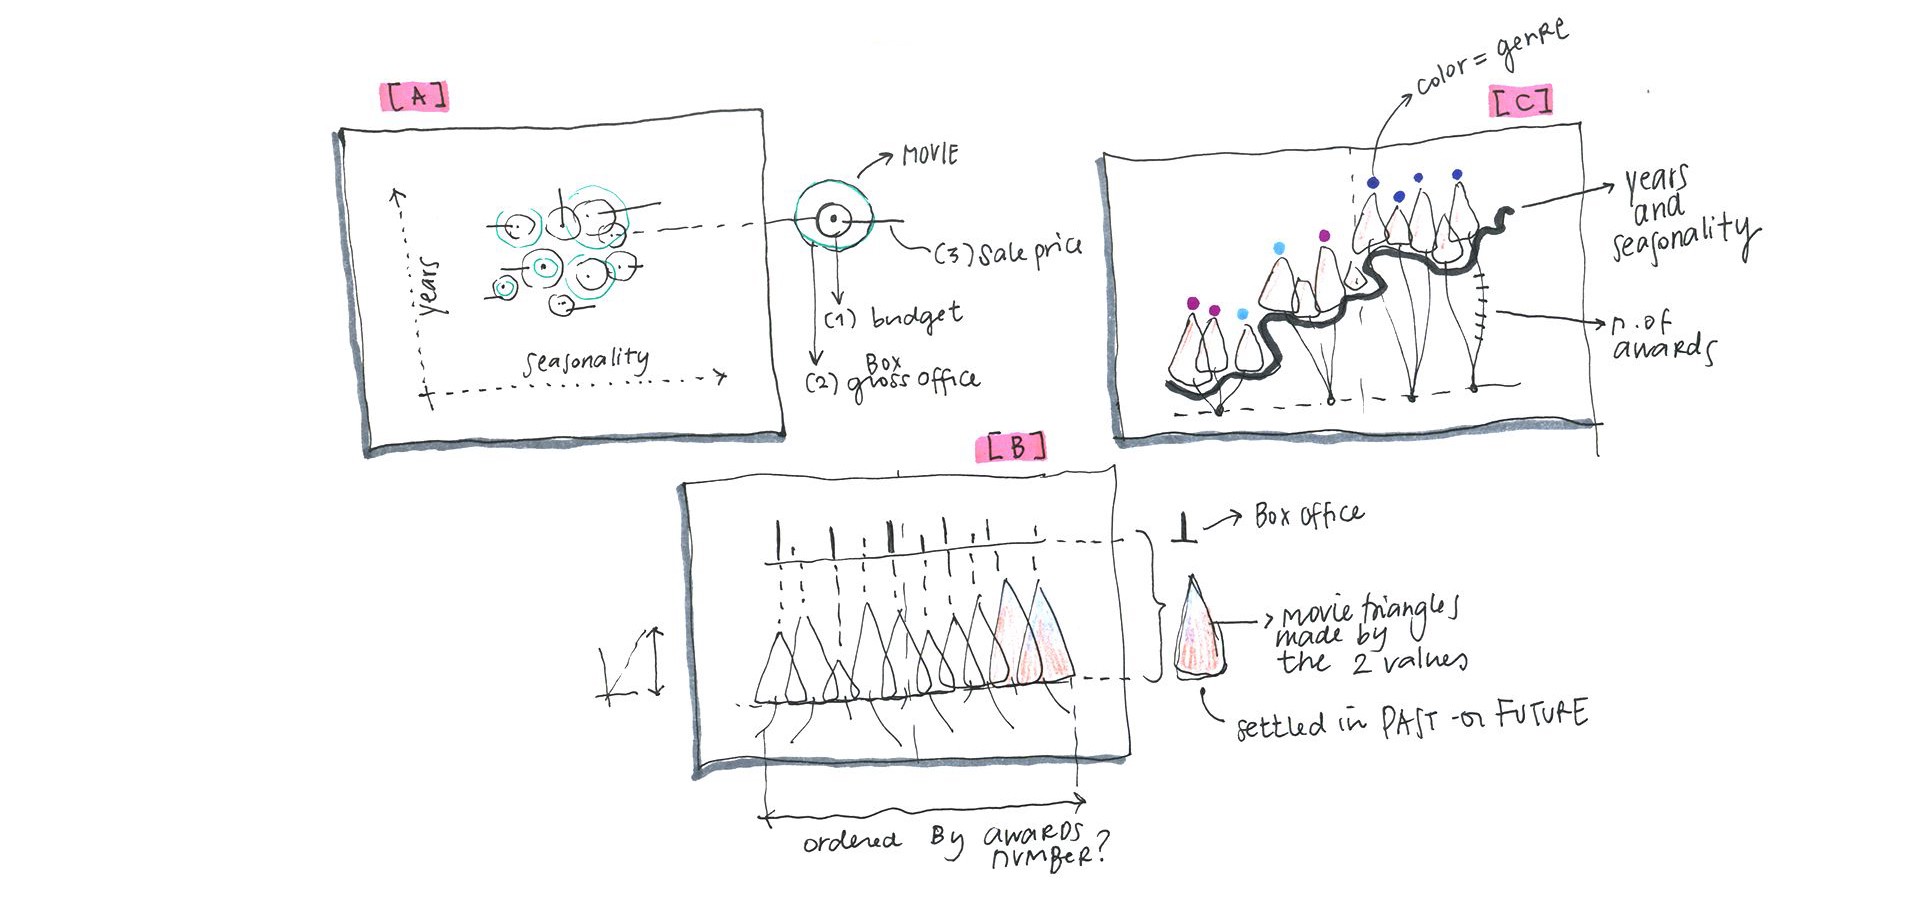 [A]
MOVIE
(3) sale price
(1) budget
Box
(2) gross office
years
seasonality
color = genre
[C]
years
and
seasonality
n. of
awards
[B]
Box office
movie triangles
made by
the 2 values
settled in PAST or FUTURE
ordered By awards
number?